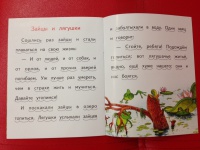 Зайцы и лягушки
Сошлись раз зайцы и стали
плакаться на свою жизнь:
— И от людей, и от собак, и
от орлов, и от прочих зверей
погибаем. Уж лучше раз умереть,
чем в страхе жить и мучиться.
Давайте утопимся!
И поскакали зайцы на озеро
топиться. Лягушки услыхали зайцев
и забултыхали в воду. Один заяц
и говорит:
— Стойте, ребята! Подождём
топиться: вот
житьё, ещё хуже нашего: они и
нас боятся.